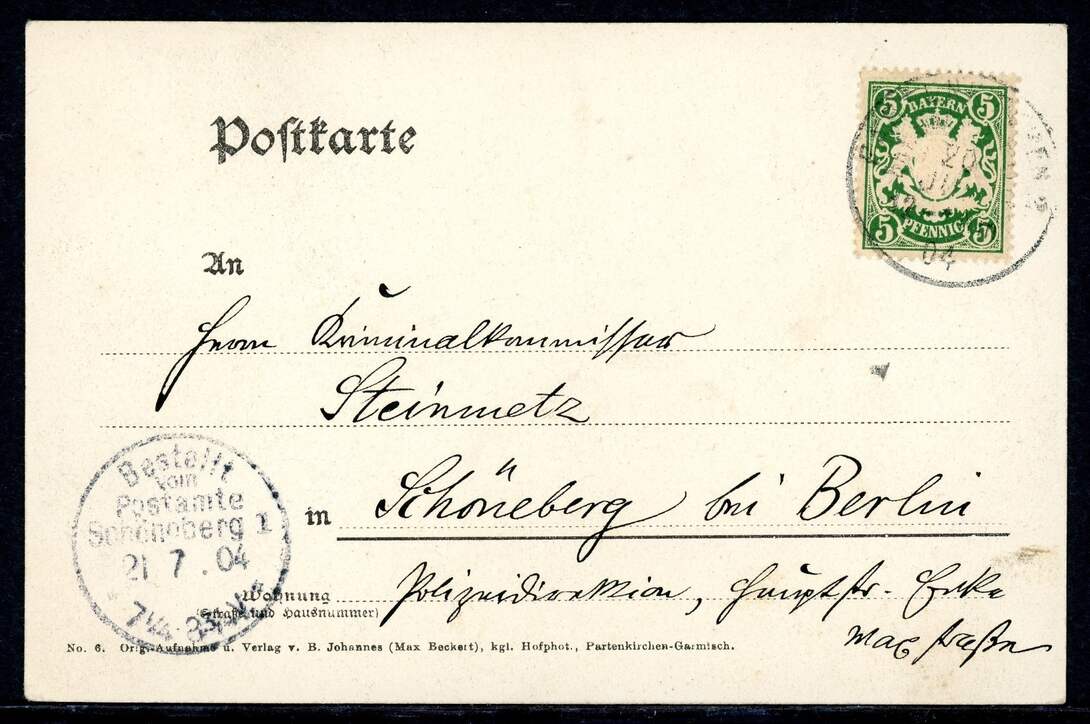 Postkarte
5 BAYERN 5
5 PFENNIG 5
20
JUL
04
An
Herrn Kriminalkommissar
Steinmetz
in Schöneberg bei Berlin
Wohnung Polizeidirektion, Hauptstr. Ecke
(Straße und Hausnummer)
Max straße
Bestellt
vom
Postamte
Schöneberg 1
21 7 . 04
7¼-8¾ V.
No. 6. Orig.-Aufnahme u. Verlag v. B. Johannes (Max Beckert), kgl. Hofphot., Partenkirchen-Garmisch.